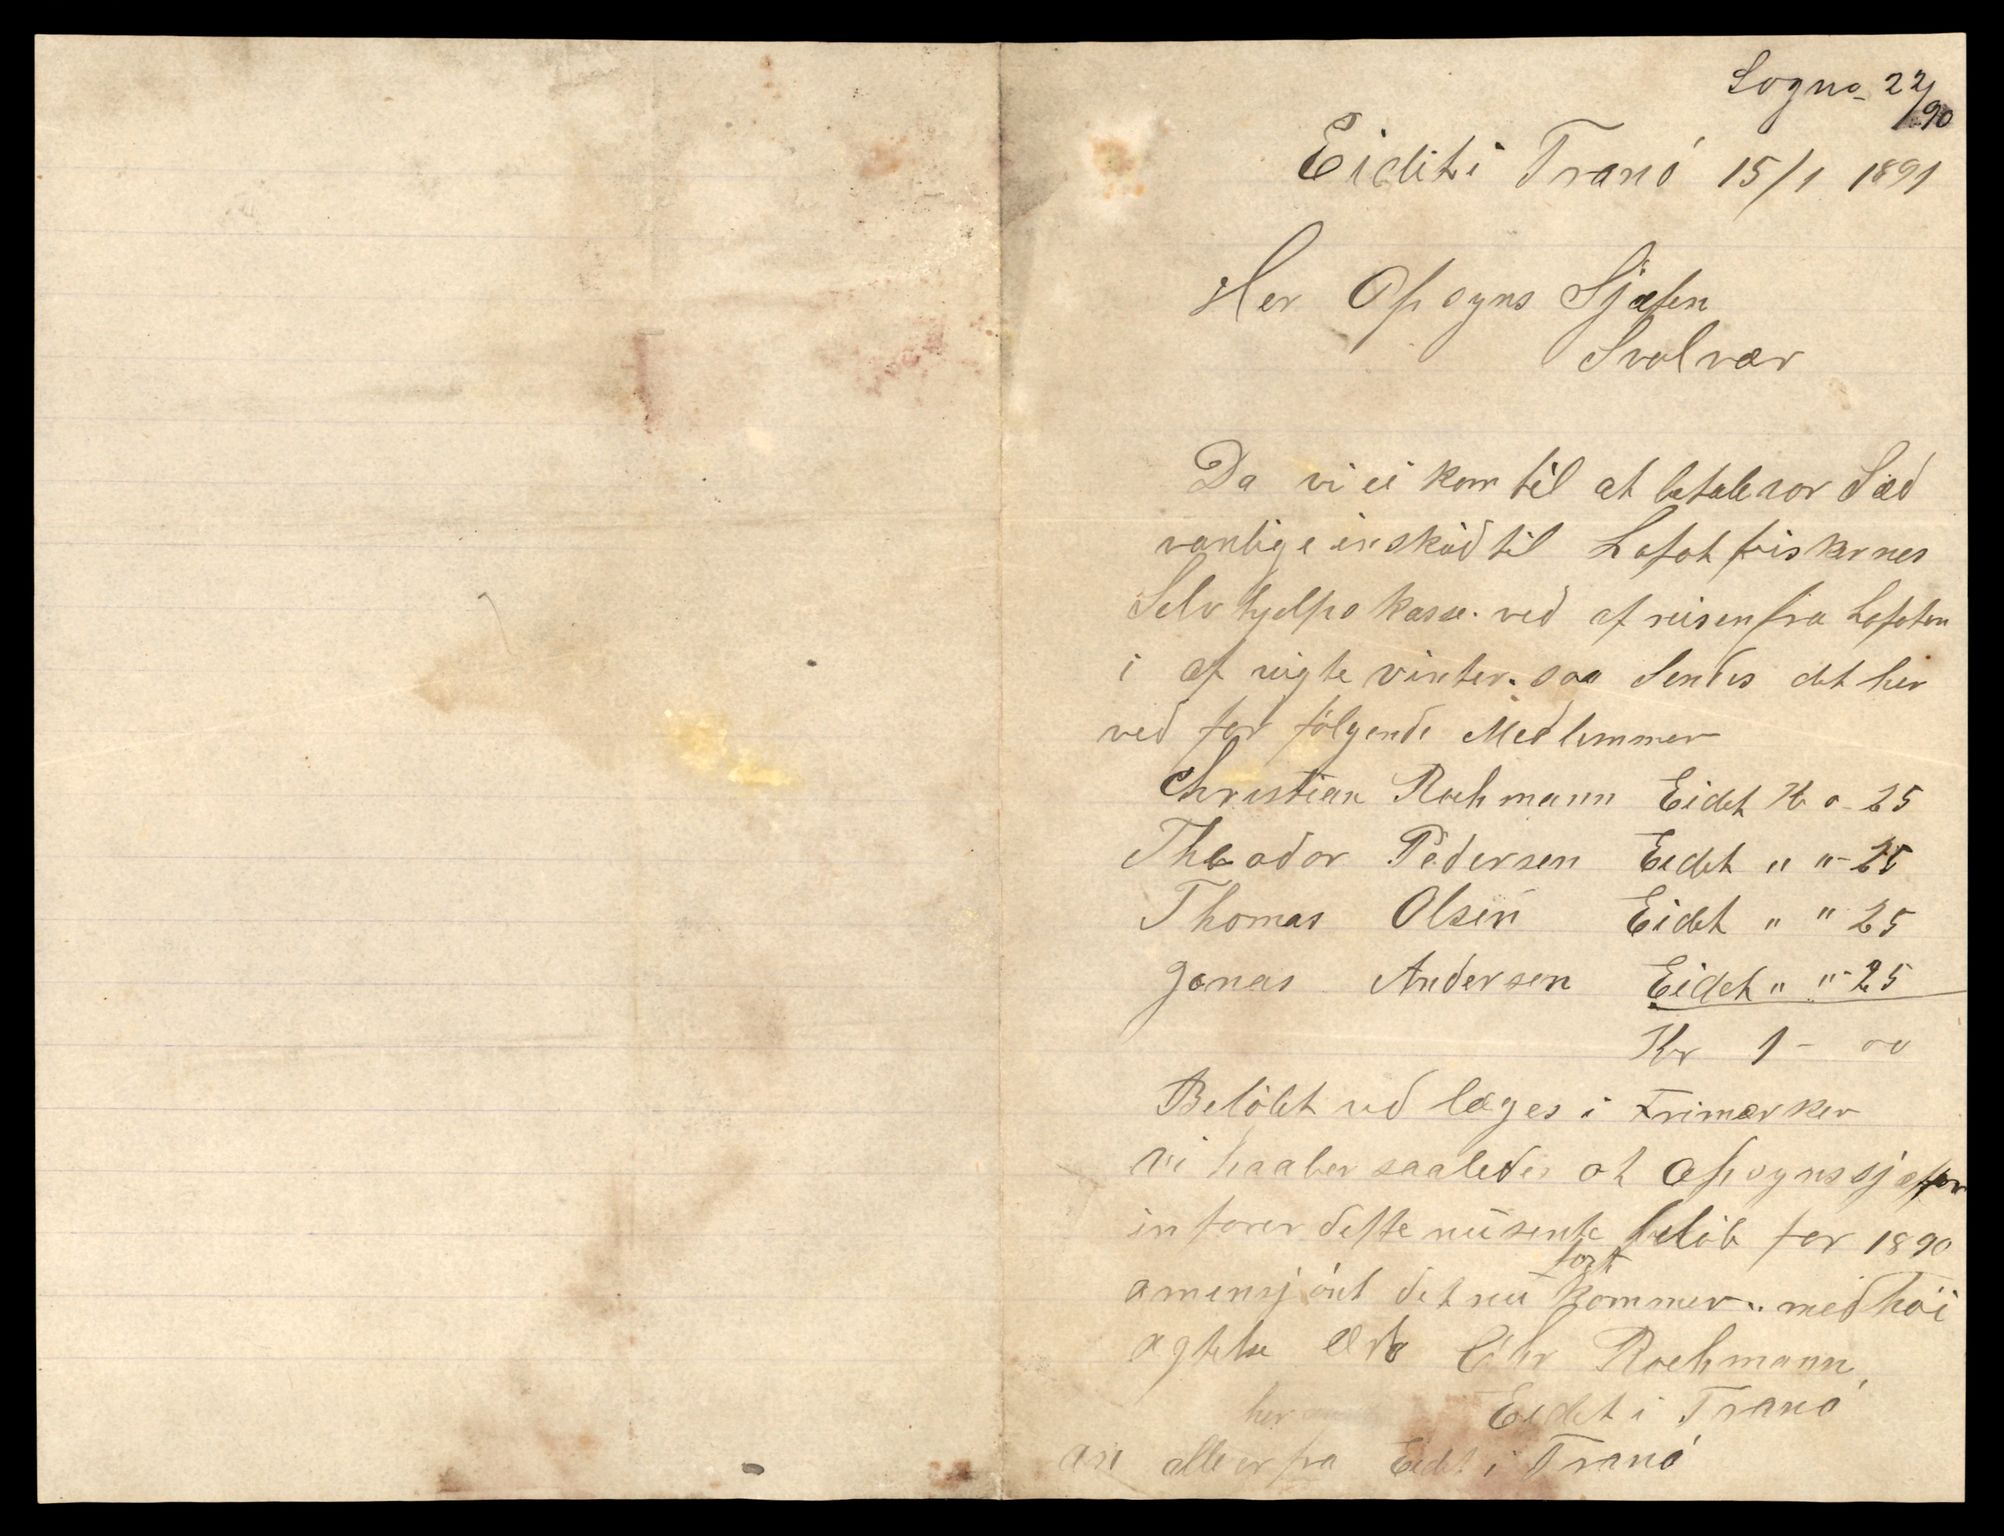 Sogna 22/90
Eidet i Tranö 15/1 1891
Her Opsyns Sjæfen
Svolvær
Da vi ei kom til at betale vor Sæd
vanlige inskud til Lofotfiskernes
Selvhjelps kasse. ved afreisen fra Lofoten
i afvigte vinter. saa Sendes det her
ved for fölgende Medlemmer
Christian Rochmann Eidet Kr o - 25
Theodor Pedersen Eidet " " - 25
Thomas Olsen Eidet " " 25
Jonas Andersen Eidet " " - 25
Kr 1 - 00
Belöbet vedlæges i Frimærker
vi haaber saaledes at opsynssjæfen
införer dette nu sente belöb for 1890
omensjönt det nu först kommer. med höi
agtelse ærb Chr Rochmann,
Eidet i Tranö
her
vi alle er fra Eidet i Tranö